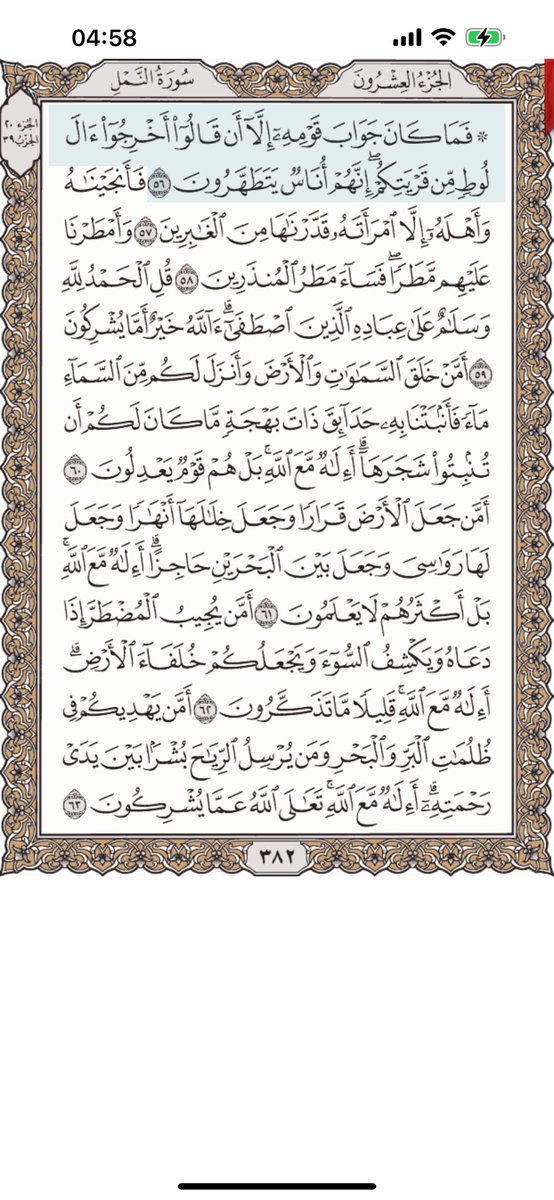 04:58
الجزء العشرون
سورة النمل
الجزء ٢٠
الحزب ٣٩
۞ فَمَا كَانَ جَوَابَ قَوْمِهِۦٓ إِلَّآ أَن قَالُوٓا۟ أَخْرِجُوٓا۟ ءَالَ
لُوطٍ مِّن قَرْيَتِكُمْ ۖ إِنَّهُمْ أُنَاسٌ يَتَطَهَّرُونَ ٥٦ فَأَنجَيْنَٰهُ
وَأَهْلَهُۥٓ إِلَّا ٱمْرَأَتَهُۥ قَدَّرْنَٰهَا مِنَ ٱلْغَٰبِرِينَ ٥٧ وَأَمْطَرْنَا
عَلَيْهِم مَّطَرًا ۖ فَسَآءَ مَطَرُ ٱلْمُنذَرِينَ ٥٨ قُلِ ٱلْحَمْدُ لِلَّهِ
وَسَلَٰمٌ عَلَىٰ عِبَادِهِ ٱلَّذِينَ ٱصْطَفَىٰٓ ۗ ءَآللَّهُ خَيْرٌ أَمَّا يُشْرِكُونَ
٥٩ أَمَّنْ خَلَقَ ٱلسَّمَٰوَٰتِ وَٱلْأَرْضَ وَأَنزَلَ لَكُم مِّنَ ٱلسَّمَآءِ
مَآءً فَأَنۢبَتْنَا بِهِۦ حَدَآئِقَ ذَاتَ بَهْجَةٍ مَّا كَانَ لَكُمْ أَن
تُنۢبِتُوا۟ شَجَرَهَآ ۗ أَءِلَٰهٌ مَّعَ ٱللَّهِ ۚ بَلْ هُمْ قَوْمٌ يَعْدِلُونَ ٦٠
أَمَّن جَعَلَ ٱلْأَرْضَ قَرَارًا وَجَعَلَ خِلَٰلَهَآ أَنْهَٰرًا وَجَعَلَ
لَهَا رَوَٰسِىَ وَجَعَلَ بَيْنَ ٱلْبَحْرَيْنِ حَاجِزًا ۗ أَءِلَٰهٌ مَّعَ ٱللَّهِ ۚ
بَلْ أَكْثَرُهُمْ لَا يَعْلَمُونَ ٦١ أَمَّن يُجِيبُ ٱلْمُضْطَرَّ إِذَا
دَعَاهُ وَيَكْشِفُ ٱلسُّوٓءَ وَيَجْعَلُكُمْ خُلَفَآءَ ٱلْأَرْضِ ۗ
أَءِلَٰهٌ مَّعَ ٱللَّهِ ۚ قَلِيلًا مَّا تَذَكَّرُونَ ٦٢ أَمَّن يَهْدِيكُمْ فِى
ظُلُمَٰتِ ٱلْبَرِّ وَٱلْبَحْرِ وَمَن يُرْسِلُ ٱلرِّيَٰحَ بُشْرًۢا بَيْنَ يَدَىْ
رَحْمَتِهِۦٓ ۗ أَءِلَٰهٌ مَّعَ ٱللَّهِ ۚ تَعَٰلَى ٱللَّهُ عَمَّا يُشْرِكُونَ ٦٣
٣٨٢